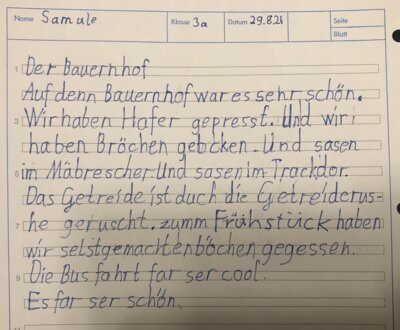 Name Samule Klasse 3a Datum 29.8.21 Seite
Blatt
1 Der Bauernhof
Auf denn Bauernhof war es sehr schön.
3 Wir haben Hafer gepresst. Und wir
haben Bröchen gebcken. Und sasen
5 im Mäbrescher. Und sasen im Trackdor.
Das Getreide ist duch die Getreiderus-
7 he geruscht. zumm Frühstück haben
wir selstgemachtenböchen gegessen.
9 Die Bus fahrt far ser cool.
Es far ser schön.